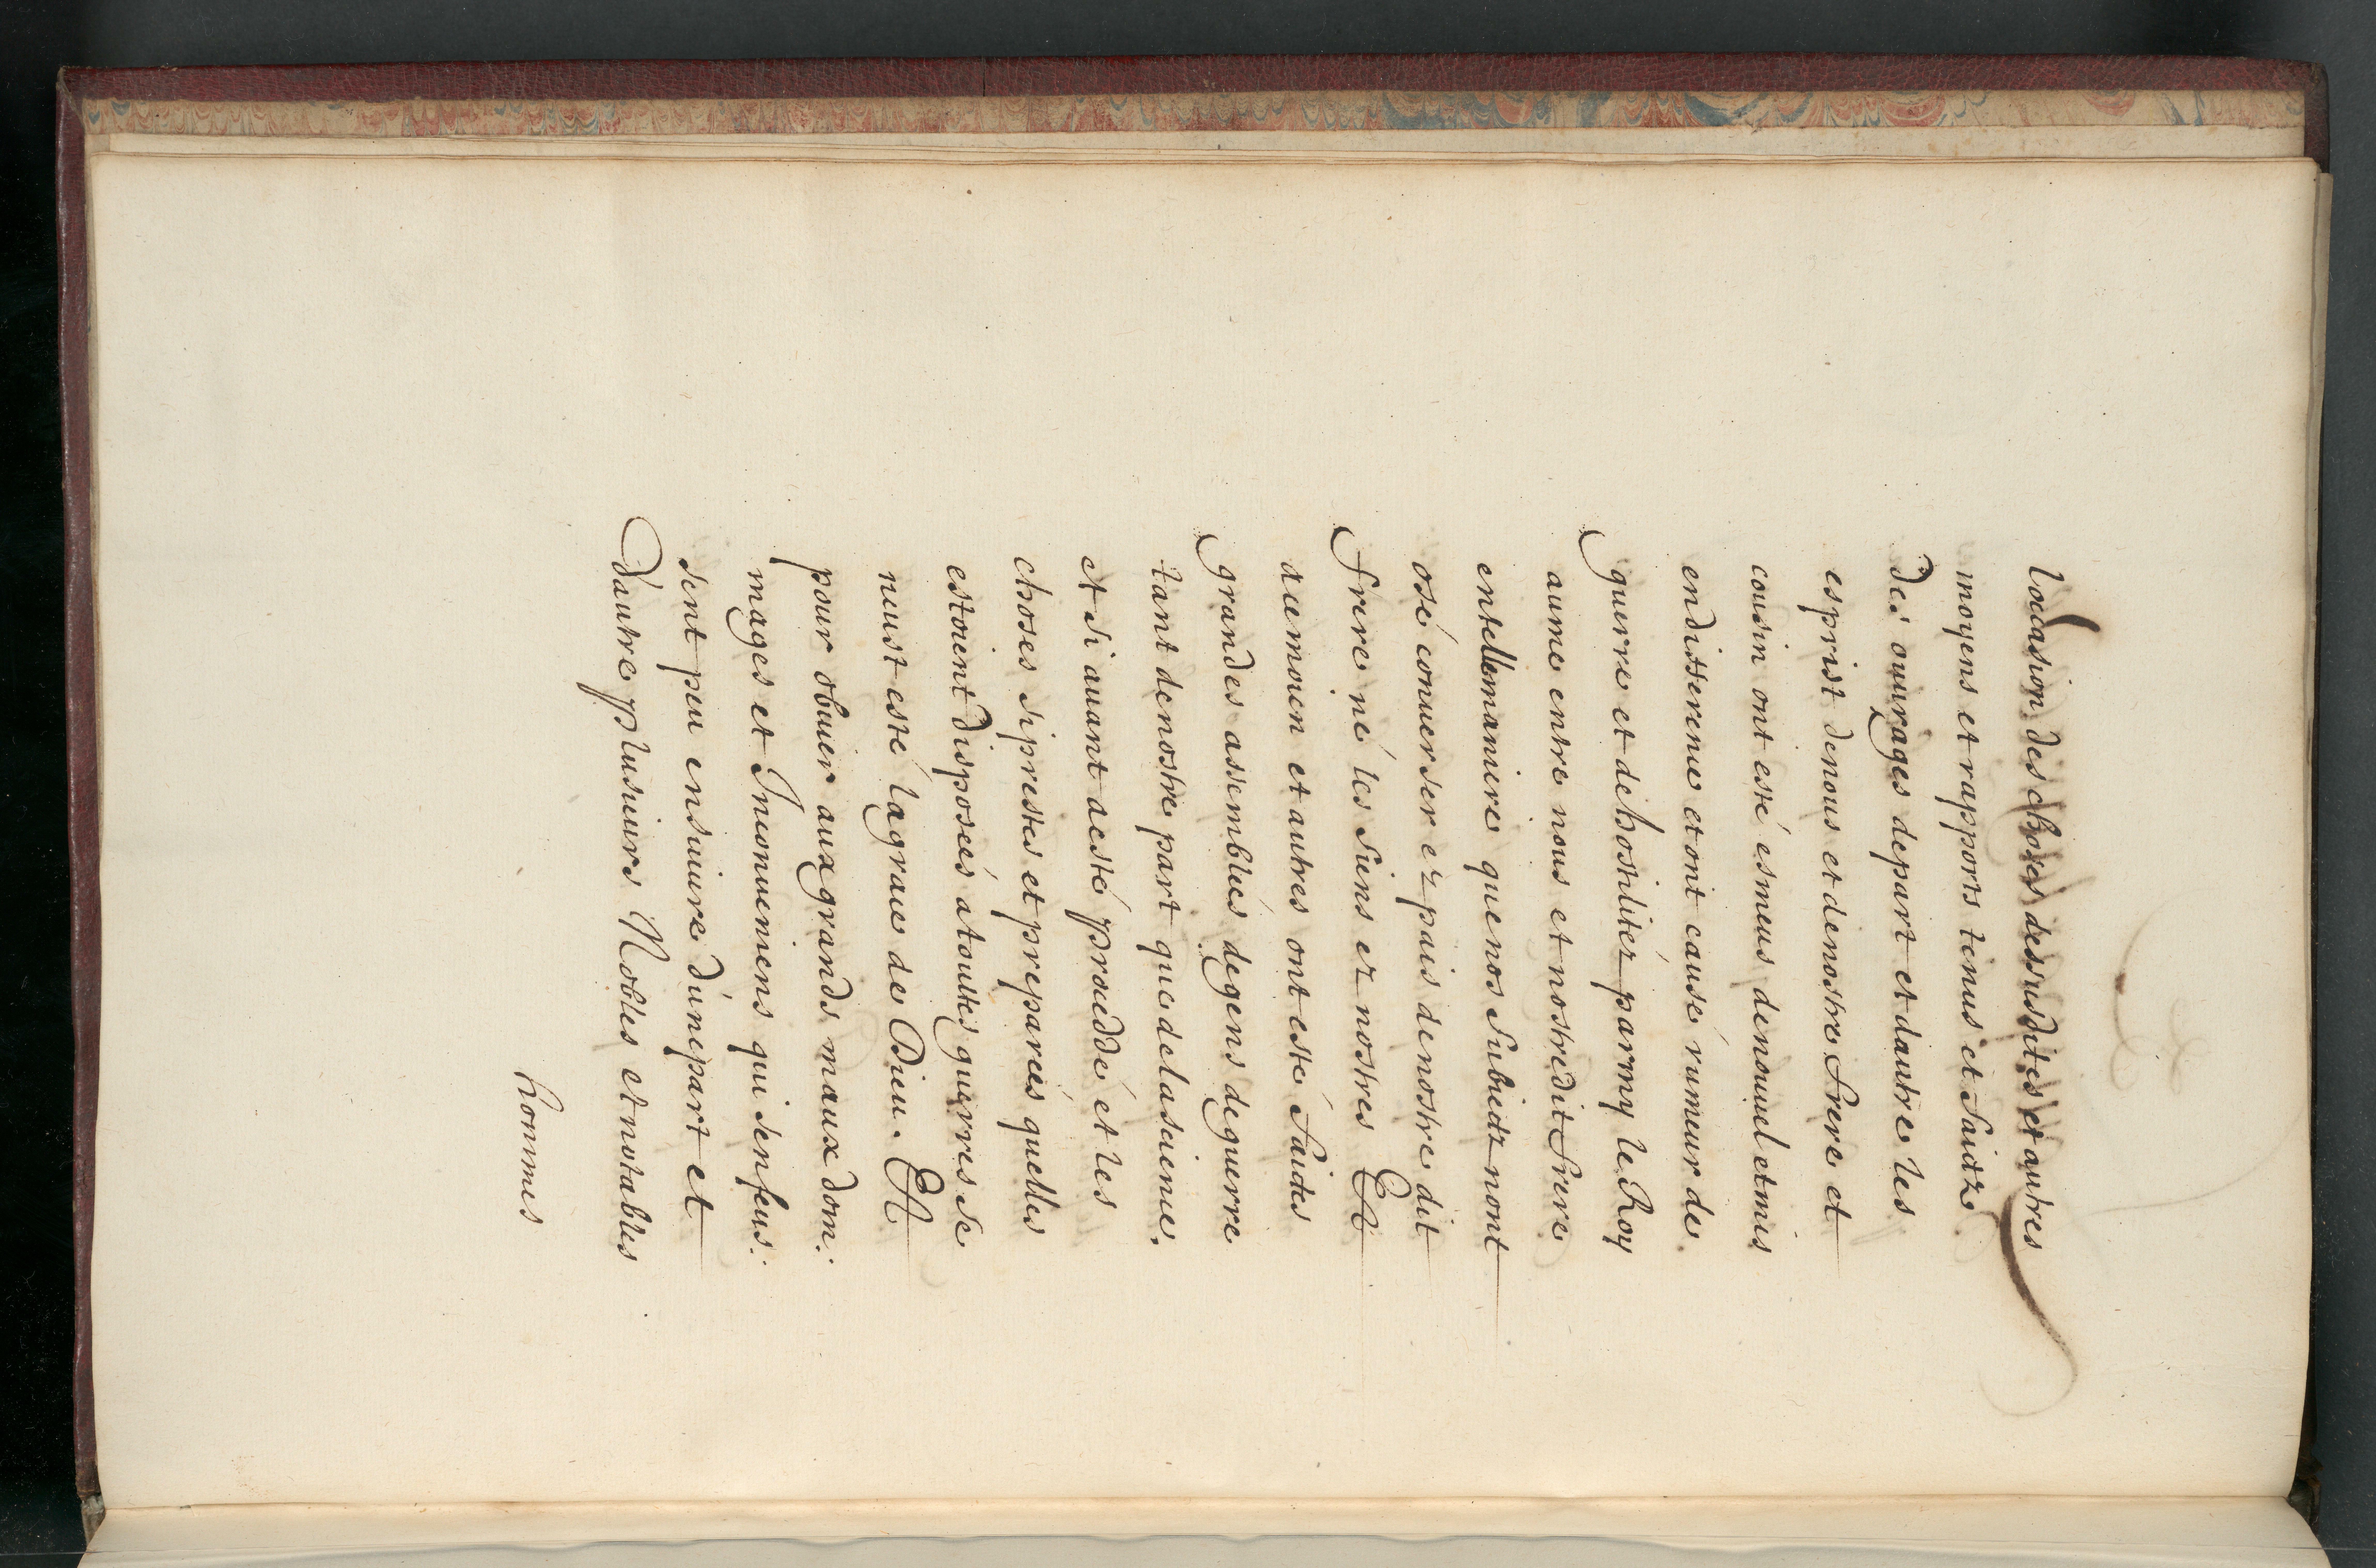 locasion des choses dessusdites et autres
moyens et rapports tenus et faictz
des ouurages depart et dautre les
esprist denous et denostre frere et
cousin ont esté esmeus denouuel et mis
endisserence et ont causé rumeur de
guerre et dehostilitéz parmy le Roy
aume entre nous et nostredit frere
entellemaniere que nos subiectz nont
osé conuerser ez pais denostre dit
frere né les siens ez nostres Et
acemoien et autres ont esté faictes
grandes assemblées degens deguerre
tant denostre part que delasienne,
et si auant aesté proceddé et les
choses siprestes et preparées quelles
estoient disposées atoutes guerres se
neust esté lagrace de Dieu. Et
pour obuier aux grands maux dom:
mages et Inconueniens qui senfeus:
sent peu ensuiure dúnepart et
dautre plusieurs Nobles et notables
hommes